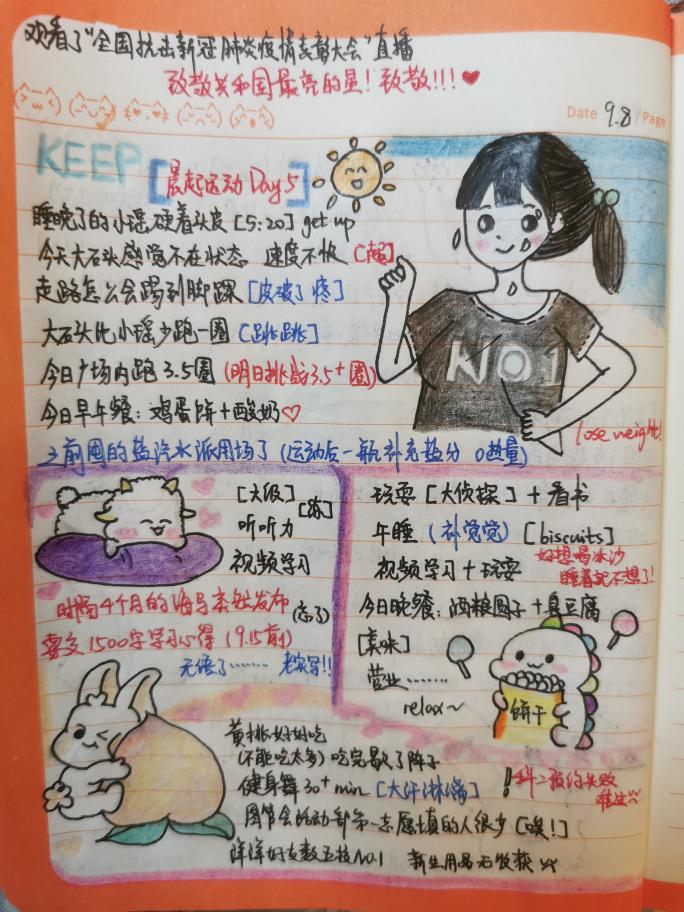 观看了"全国抗击新冠肺炎疫情表彰大会"直播
致敬共和国最亮的星!致敬!!!
Date 9.8 /Page
KEEP [晨起运动 Day 5]
睡晚了的小瑶硬着头皮 [5:20] get up
今天大石头感觉不在状态 速度不快 [超]
走路怎么会踢到脚踝 [皮破了 疼]
大石头比小瑶少跑一圈 [跳跳]
今日广场内跑3.5圈 (明日挑战3.5+圈)
今日早午餐:鸡蛋饼+酸奶
之前囤的盐汽水派用场了 (运动后一瓶补充盐分 0热量)
NO1
lose weight!
[六级] [练]
听听力
视频学习
时隔4个月的海导系姐发布 (忘了)
要交1500字学习心得 (9.15前)
无语了…… 老实写!!
玩耍 [大侦探] + 看书
午睡 (补觉觉) [biscuits]
好想喝冰沙
睡着就不想了!
视频学习+玩耍
今日晚餐:酒粮圆子+臭豆腐
[美味]
营业……
relax~
饼干
黄桃好好吃
(不能吃太多) 吃完歇了阵子
健身舞30+ min [大汗淋漓]
! 科二预约失败
难过
团节会活动部第一志愿填的人很少 [唉!]
洋洋好友数五技NO.1 新生用品无收获